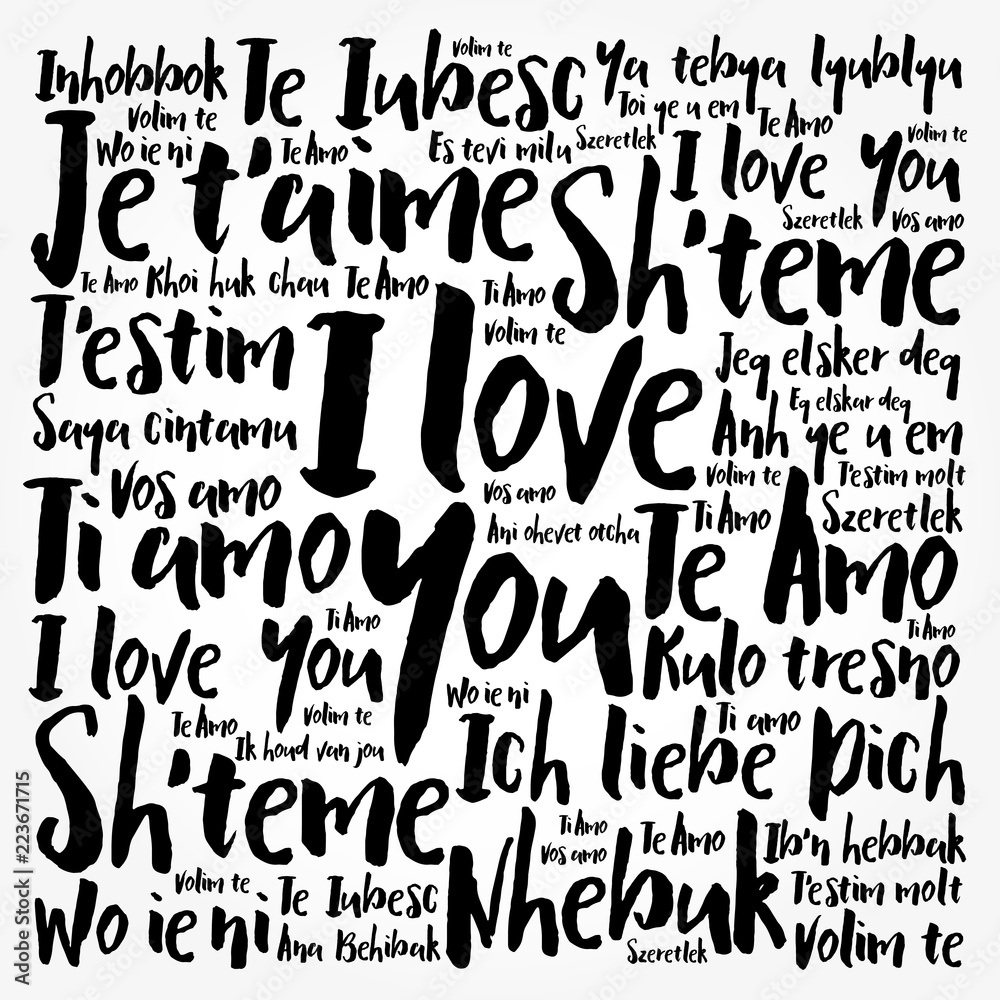 Inhobbok
Te Iubesc
Volim te
Ya tebya lyublyu
Volim te
Toi ye u em
Te Amo
Wo ie ni
Te Amo
Es tevi milu
Szeretlek
I love You
Volim te
Je t'aime
Sh'teme
Szeretlek
Vos amo
Te Amo
Khoi huk chau
Te Amo
Ti Amo
Volim te
T'estim
I love
You
Jeg elsker deg
Eg elskar deg
Saya cintamu
Anh ye u em
Vos amo
Volim te
T'estim molt
Vos amo
Ti amo
Ani ohevet otcha
Ti Amo
Szeretlek
Te Amo
I love You
Ti Amo
Ti Amo
Kulo tresno
Wo ie ni
Te Amo
Volim te
Ti amo
Ik houd van jou
Ich liebe Dich
Sh'teme
Ti Amo
Vos amo
Te Amo
Ib'n hebbak
Volim te
Te Iubesc
Nhebuk
T'estim molt
Wo ie ni
Ana Behibak
Szeretlek
Volim te
Adobe Stock | #223671715